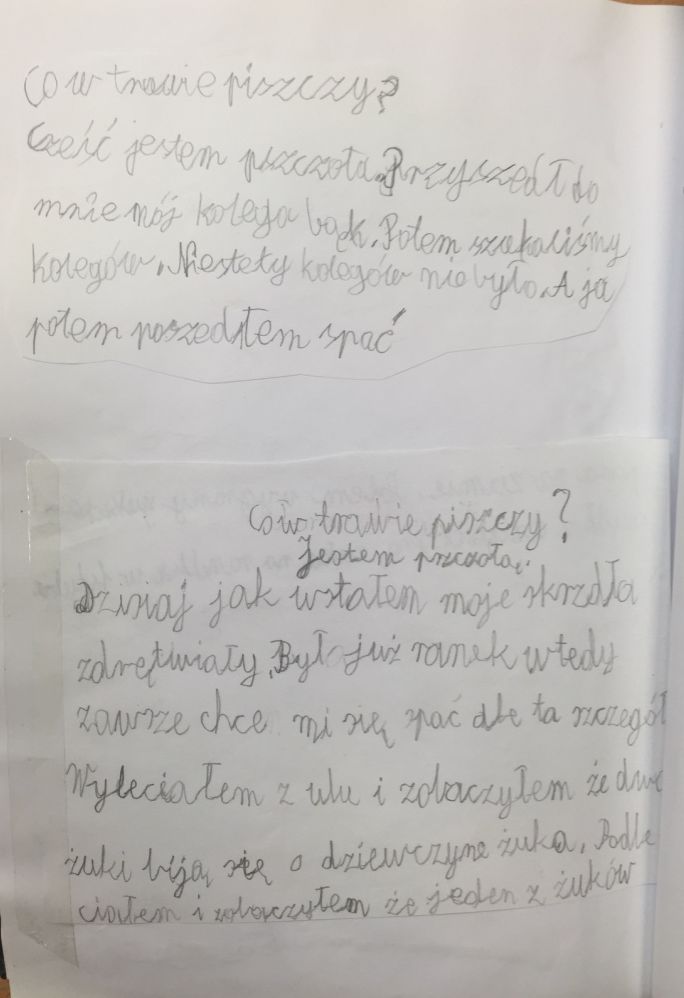 Co w trawie piszczy?
Cześć jestem pszczołą. Przyszedł do
mnie mój kolega bąk. Potem szukaliśmy
kolegów. Niestety kolegów nie było. A ja
potem poszedłem spać
Co w trawie piszczy?
Jestem pszczołą.
Dzisiaj jak wstałem moje skrzdła
zdrętwiały. Był już ranek wtedy
zawsze chce mi się spać ale ta szczegół
Wyleciałem z ulu i zobaczyłem że dwa
żuki biją się o dziewczyne żuka. Podle
ciałem i zobaczyłem że jeden z żuków